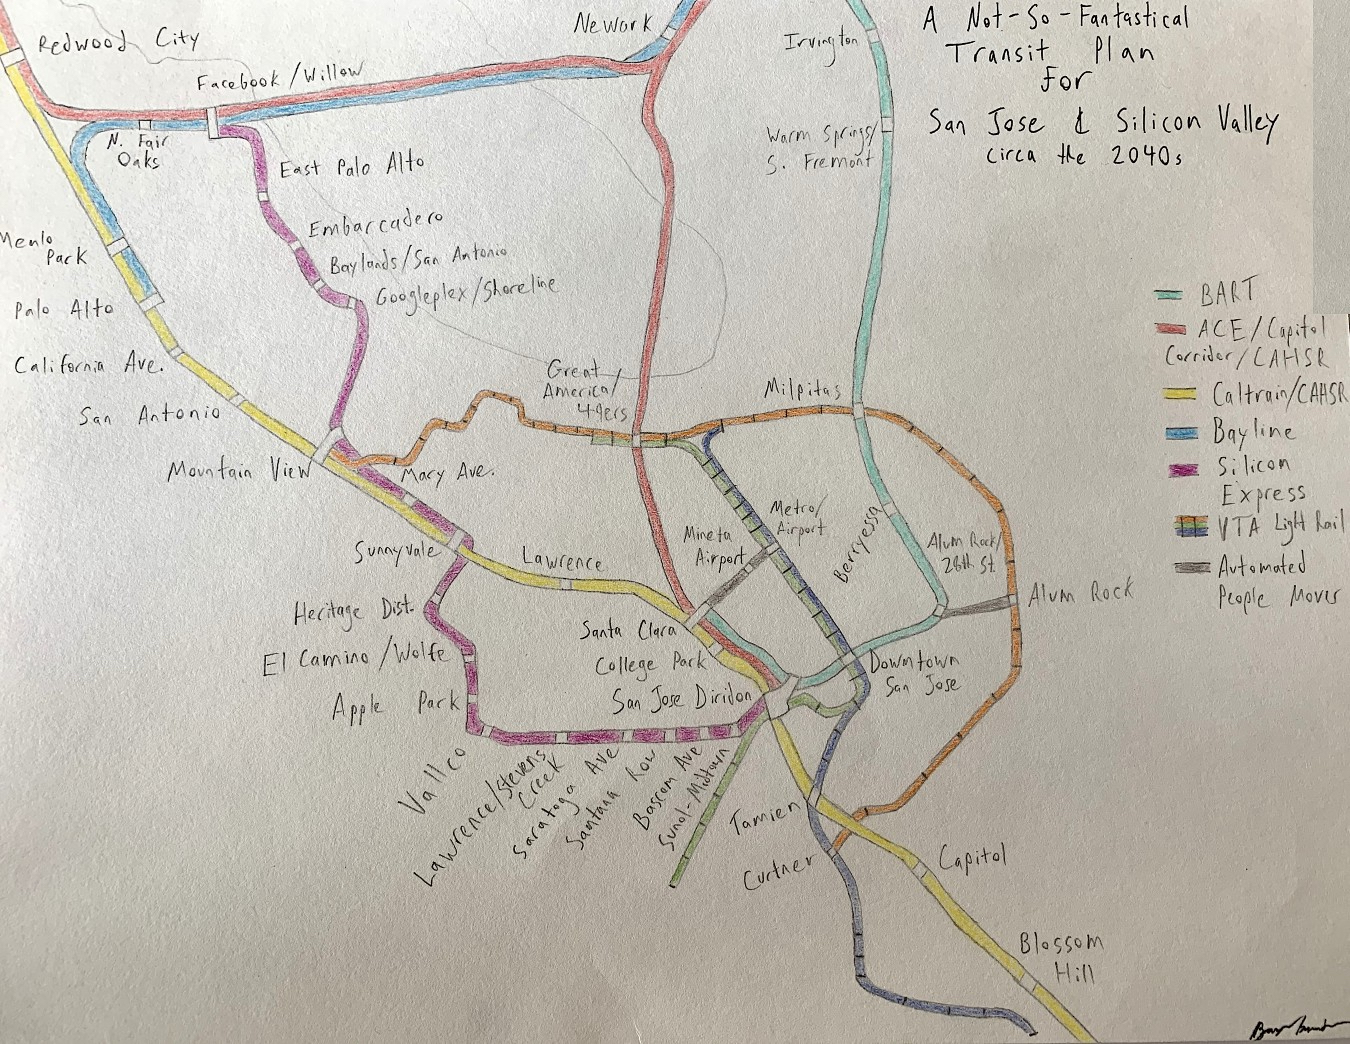 A Not-So-Fantastical
Transit Plan
For
San Jose & Silicon Valley
circa the 2040s
Redwood City
Facebook/Willow
Newark
Irvington
N. Fair
Oaks
Warm Springs/
S. Fremont
East Palo Alto
Embarcadero
Menlo
Park
Baylands/San Antonio
Googleplex/Shoreline
Palo Alto
California Ave.
San Antonio
Great
America/
49ers
Milpitas
Mountain View
Mary Ave.
Metro/
Airport
Mineta
Airport
Berryessa
Alum Rock/
28th St.
Alum Rock
Sunnyvale
Lawrence
Heritage Dist.
Santa Clara
El Camino/Wolfe
College Park
Downtown
San Jose
Apple Park
San Jose Diridon
Vallco
Lawrence/Stevens
Creek
Saratoga Ave
Santana Row
Bascom Ave
Sunol-Midtown
Tamien
Curtner
Capitol
Blossom
Hill
BART
ACE/Capitol
Corridor/CAHSR
Caltrain/CAHSR
Bayline
Silicon
Express
VTA Light Rail
Automated
People Mover